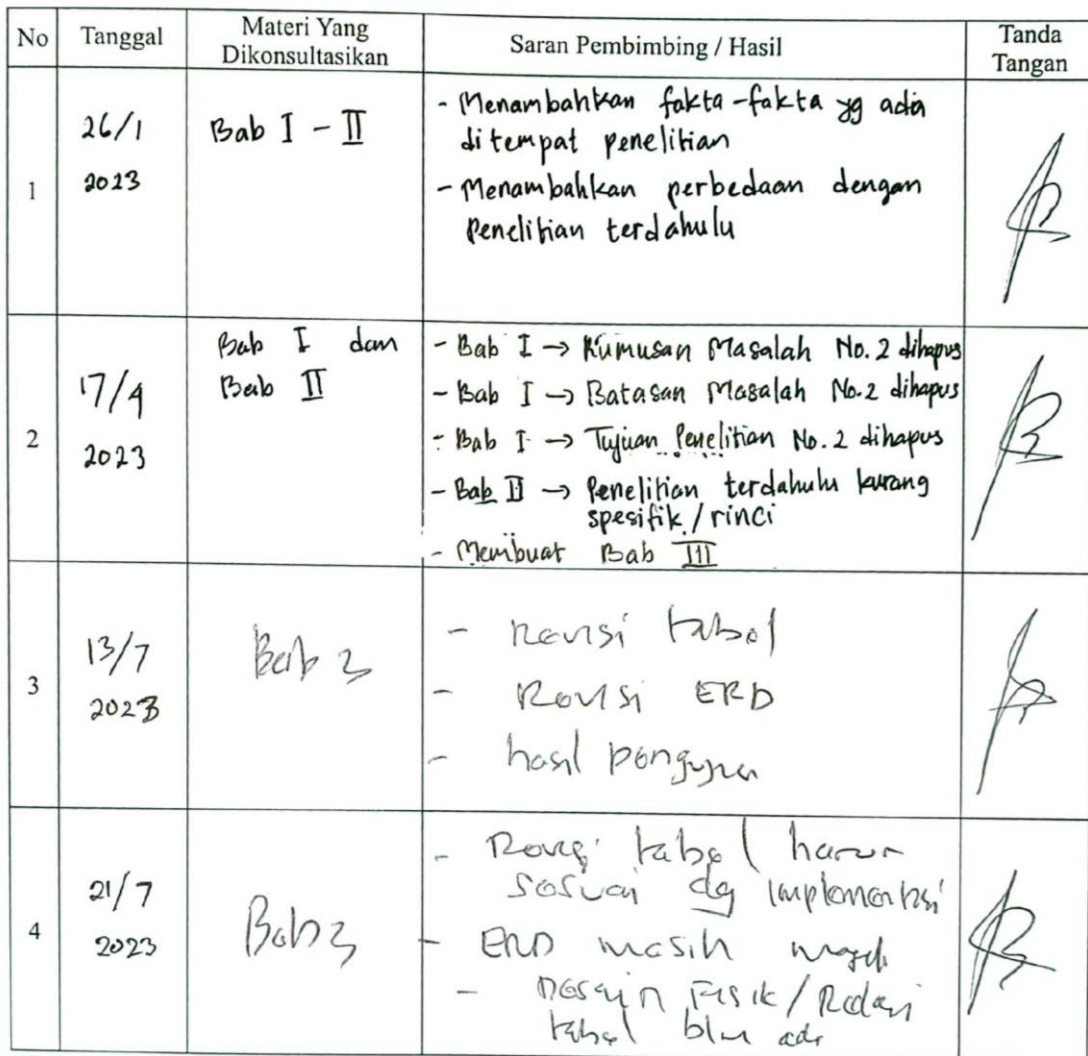 No Tanggal Materi Yang Dikonsultasikan Saran Pembimbing / Hasil Tanda Tangan
1
26/1
2023
Bab I - II
- Menambahkan fakta-fakta yg ada
di tempat penelitian
- Menambahkan perbedaan dengan
Penelitian terdahulu
2
17/4
2023
Bab I dan
Bab II
- Bab I → Rumusan Masalah No. 2 dihapus
- Bab I → Batasan Masalah No. 2 dihapus
- Bab I → Tujuan Penelitian No. 2 dihapus
- Bab II → Penelitian terdahulu kurang
spesifik / rinci
- Membuat Bab III
3
13/7
2023
Bab 3
- Revisi tabel
- Revisi ERD
- hasil pengujian
4
21/7
2023
Bab 3
- Revisi tabel harus
sesuai dg implementasi
- ERD masih
- Desain Fisik / Relasi
tabel blm ada